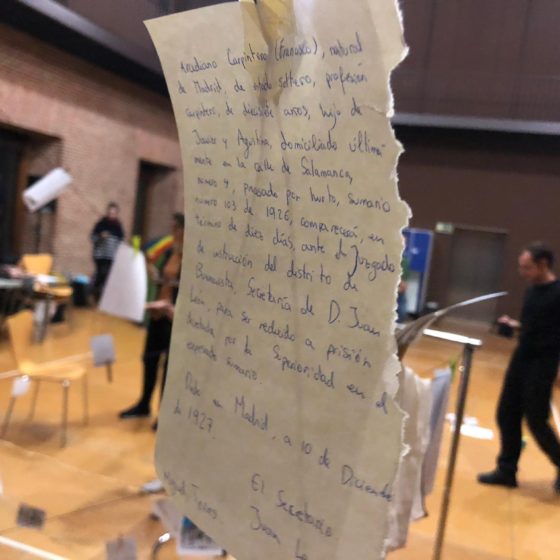 Arudiano Carpintero (Francisco), natural
de Madrid, de estado soltero, profesión
carpintero, de diecisiete años, hijo de
Javier y Agustina, domiciliado última
mente en la calle de Salamanca,
número 4, procesado por hurto, sumario
número 103 de 1926, comparecerá, en
término de diez días, ante el Juzgado
de instrucción del distrito de
Buenavista, Secretaría de D. Juan
León, para ser reducido a prisión
decretada por la Superioridad en el
expresado sumario.
Dado en Madrid, a 10 de Diciembre
de 1927.
El Secretario
Juan